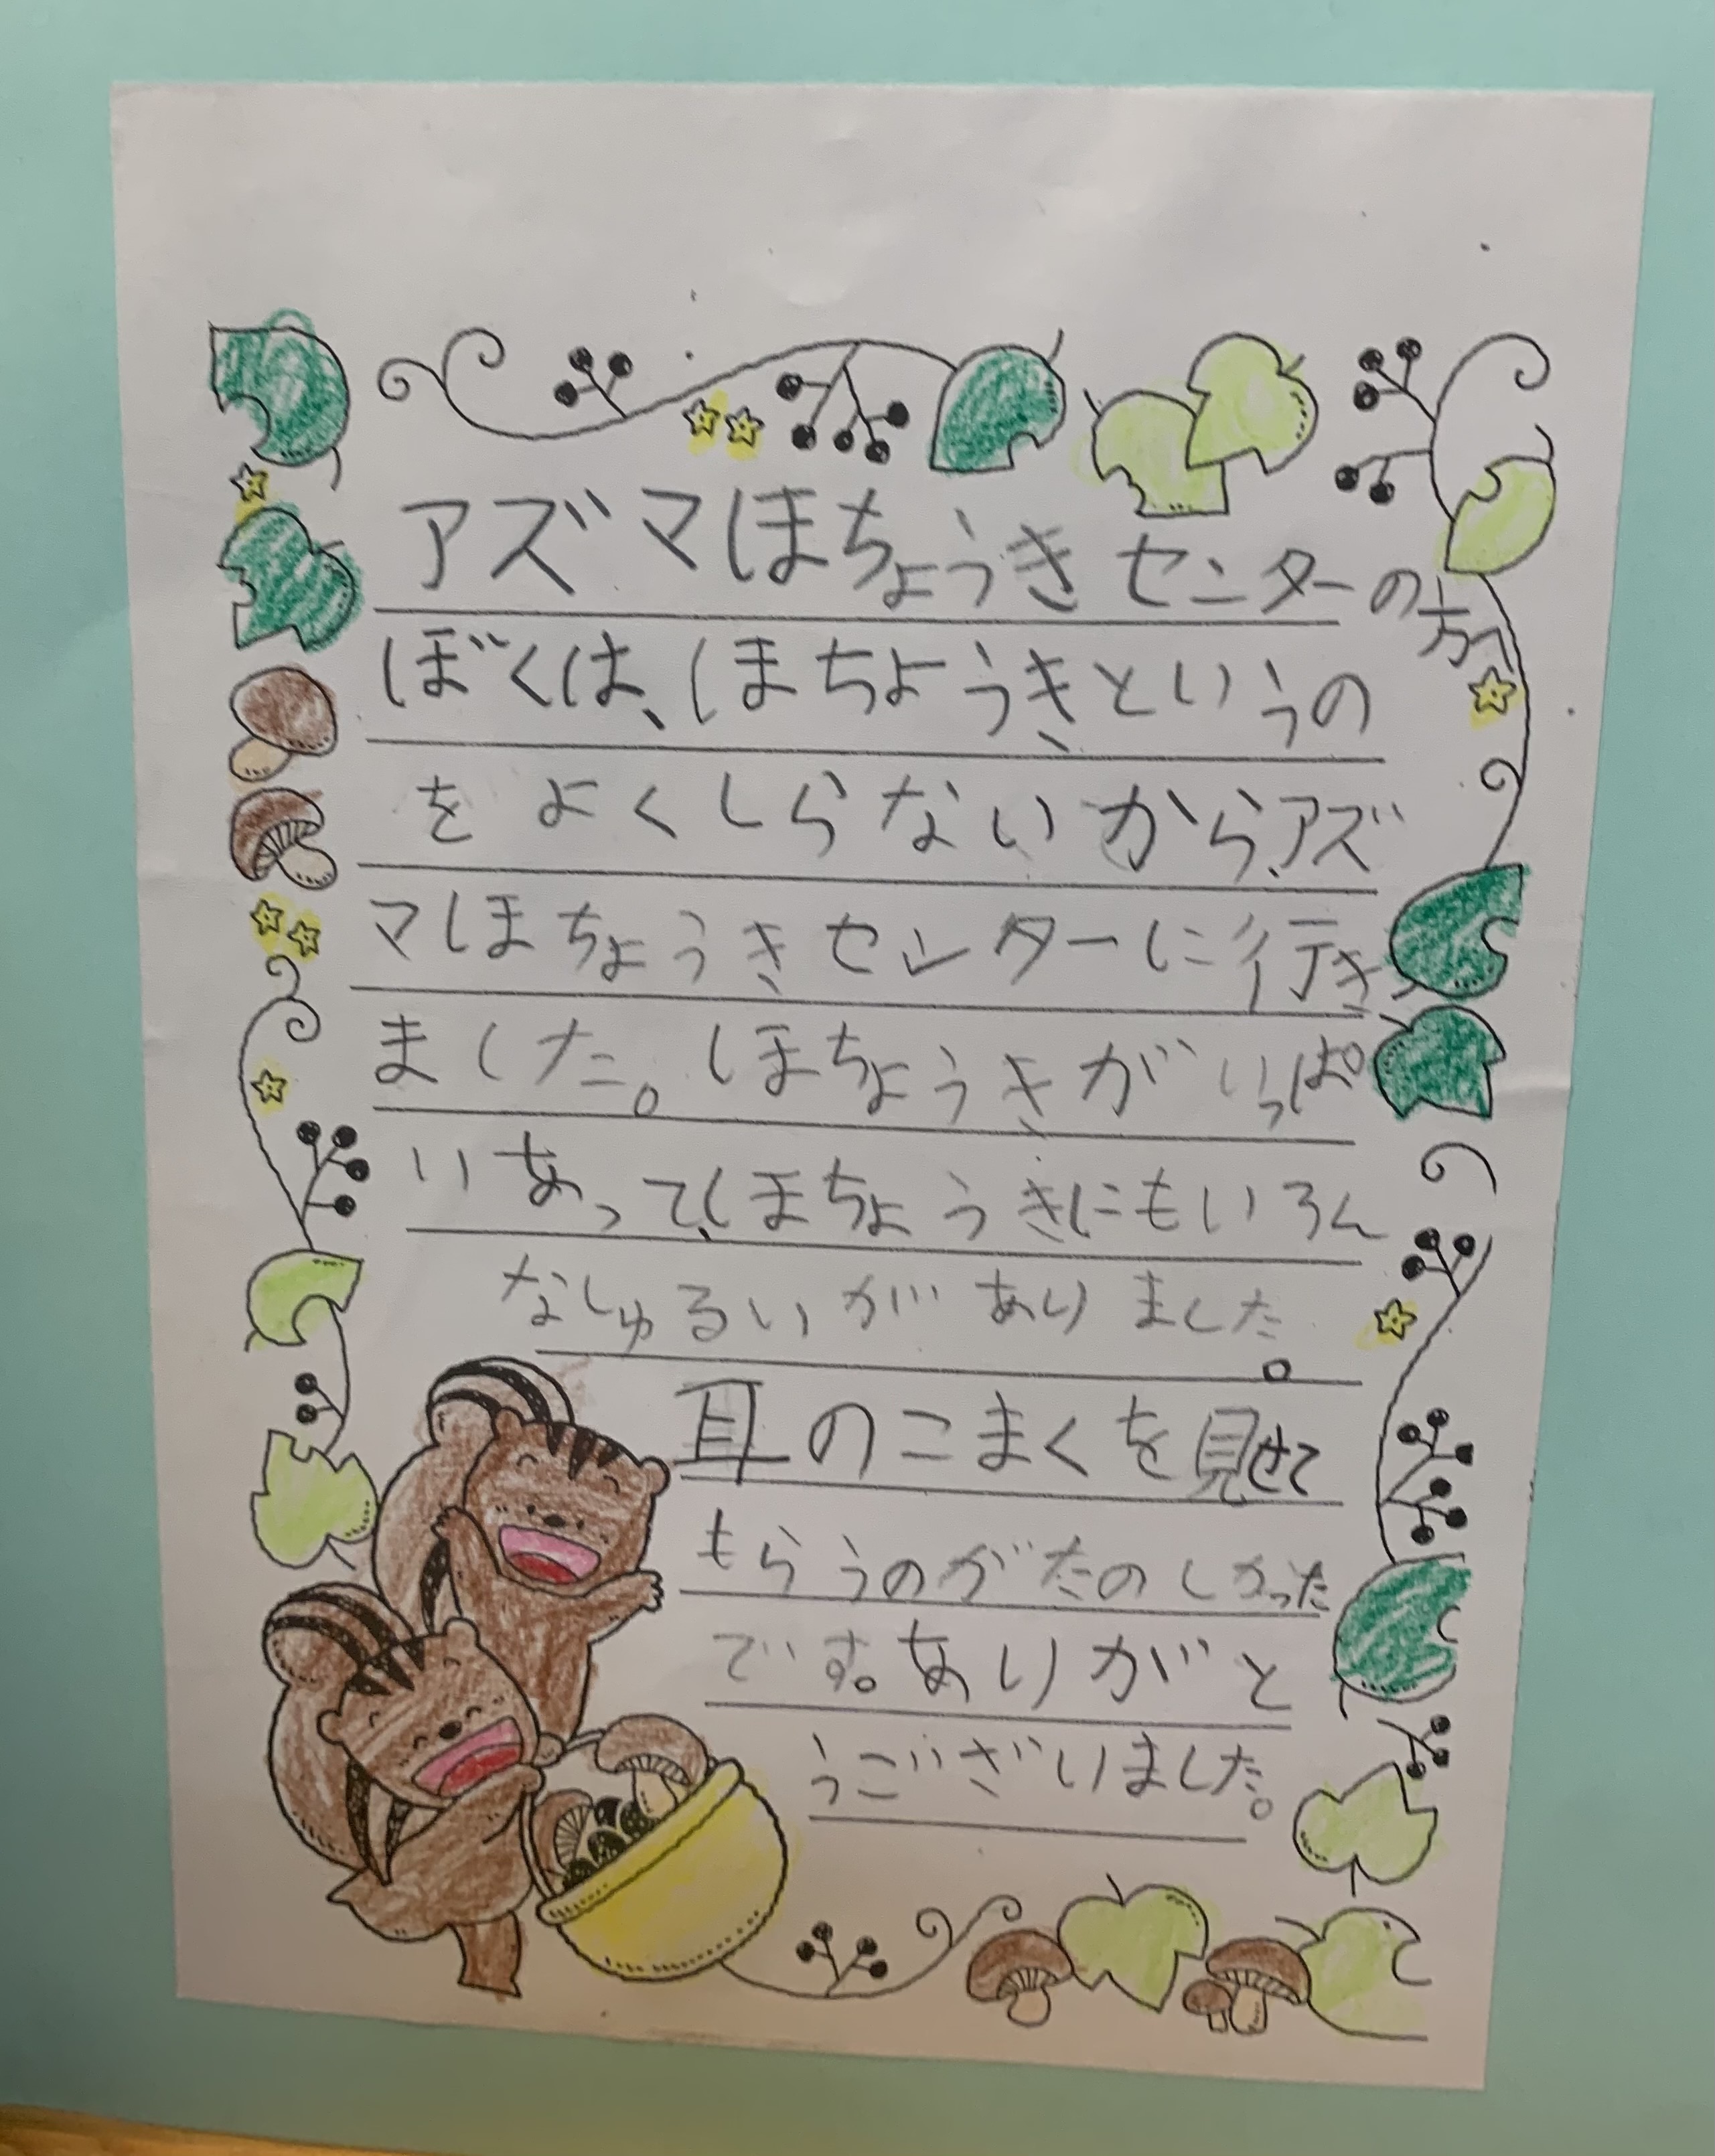 アズマほちょうきセンターの方へ
ぼくは、ほちょうきというの
をよくしらないから、アズ
マほちょうきセンターに行き
ました。ほちょうきがいっぱ
いあって、ほちょうきにもいろん
なしゅるいがありました。
耳のこまくを見せて
もらうのがたのしかった
です。ありがと
うございました。